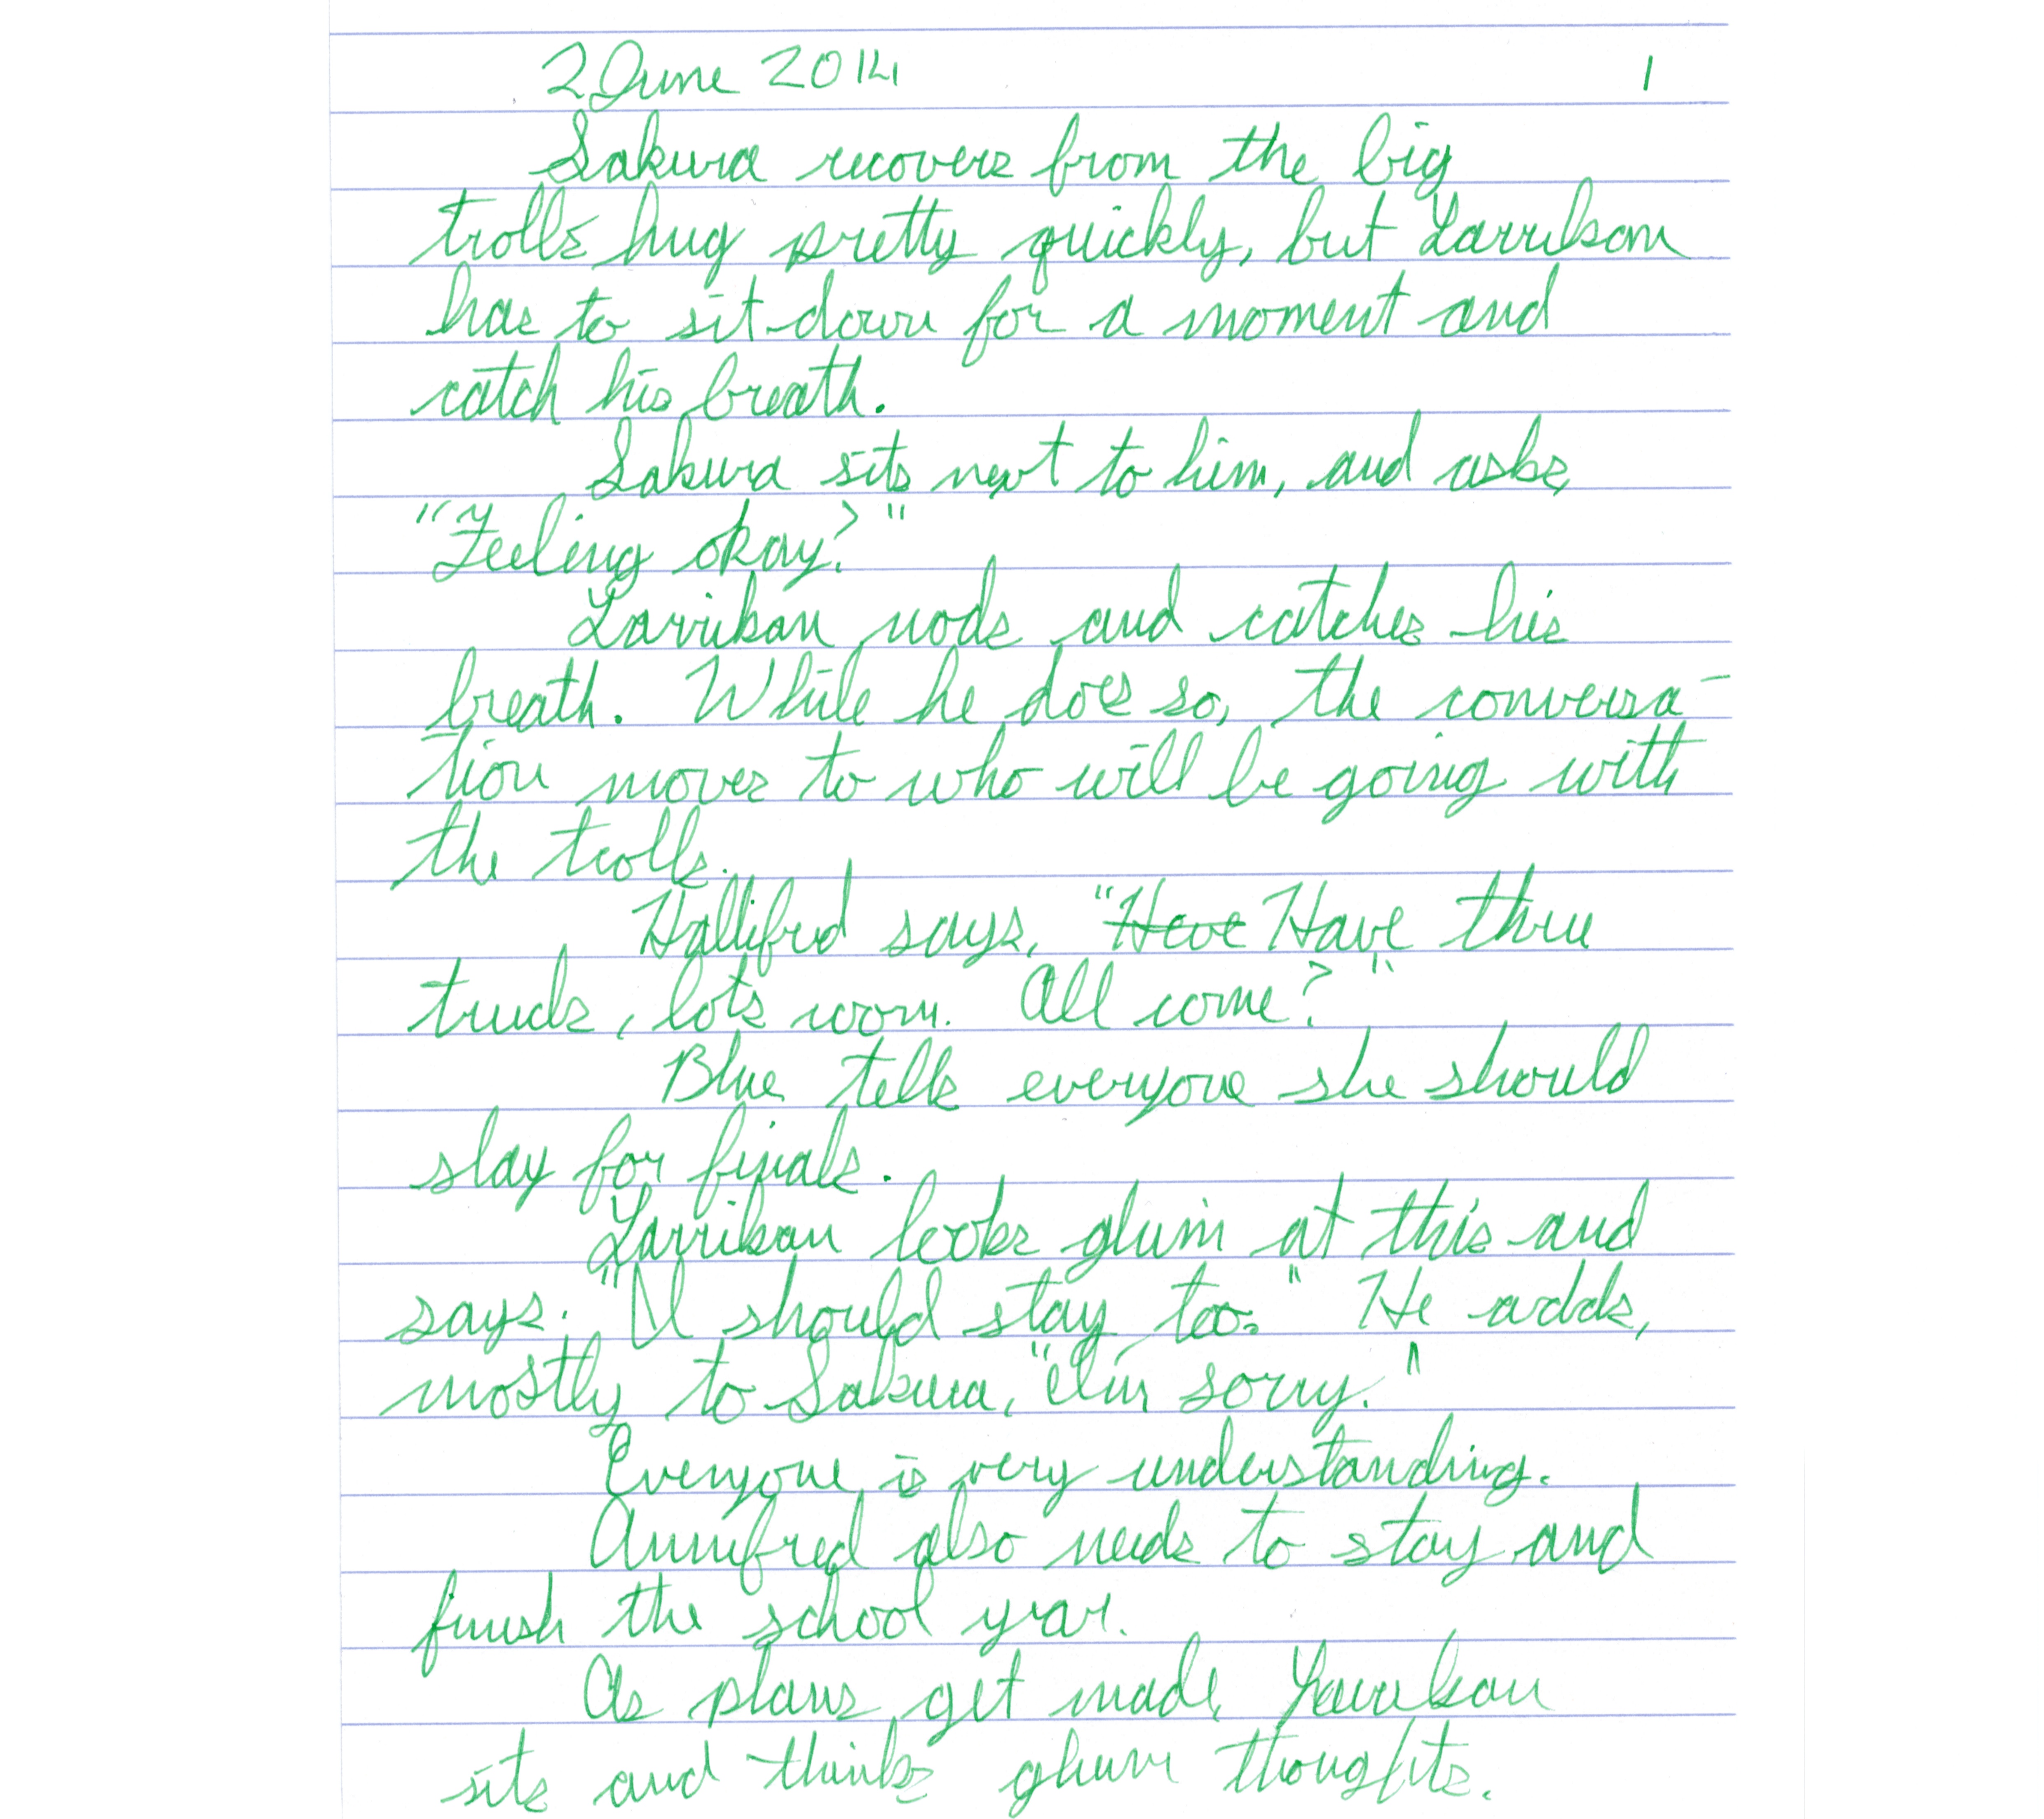 2 June 2014 1
Sakura recovers from the big
trolls hug pretty quickly, but Larrikan
has to sit down for a moment and
catch his breath.
Sakura sits next to him, and asks,
"Feeling okay?"
Larrikan nods and catches his
breath. While he does so, the conversa-
tion moves to who will be going with
the trolls.
Hallifred says, "Have Have three
trucks, lots room. All come?"
Blue tells everyone she should
stay for finals.
Larrikan looks glum at this and
says. "I should stay too." He adds,
mostly to Sakura, "I'm sorry."
Everyone is very understanding.
Annifred also needs to stay and
finish the school year.
As plans get made, Larrikan
sits and thinks glum thoughts.